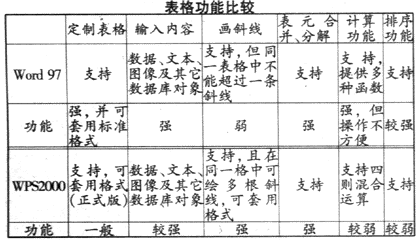 表格功能比较
定制表格 输入内容 画斜线 表元合并、分解 计算功能 排序功能
Word 97 支持 数据、文本、图像及其它数据库对象 支持，但同一表格中不能超过一条斜线 支持 支持，提供多种函数 支持
功能 强，并可套用标准格式 强 弱 强 强，但操作不方便 较强
WPS2000 支持，可套用格式(正式版) 数据、文本、图像及其它数据库对象 支持，且在同一格中可绘多根斜线，可套用格式 支持 支持四则混合运算 支持
功能 一般 较强 强 强 较弱 较弱